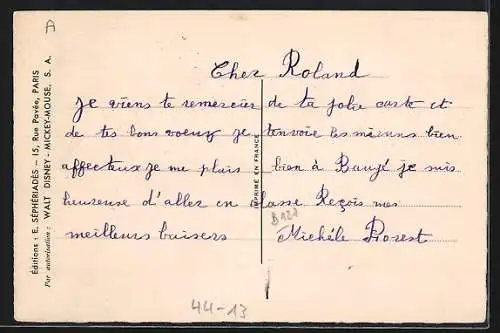 A
Éditions : E. SÉPHÉRIADÈS - 15, Rue Pavée, PARIS
Par autorisation : WALT DISNEY - MICKEY-MOUSE, S. A.
IMPRIMÉ EN FRANCE
Cher Roland
Je viens te remercier de ta jolie carte et
de tes bons voeux je t'envoie les miens bien
affecteux je me plais bien à Baugé je suis
heureuse d'aller en classe Reçois mes
meilleurs baisers Michéle
B127
44-13